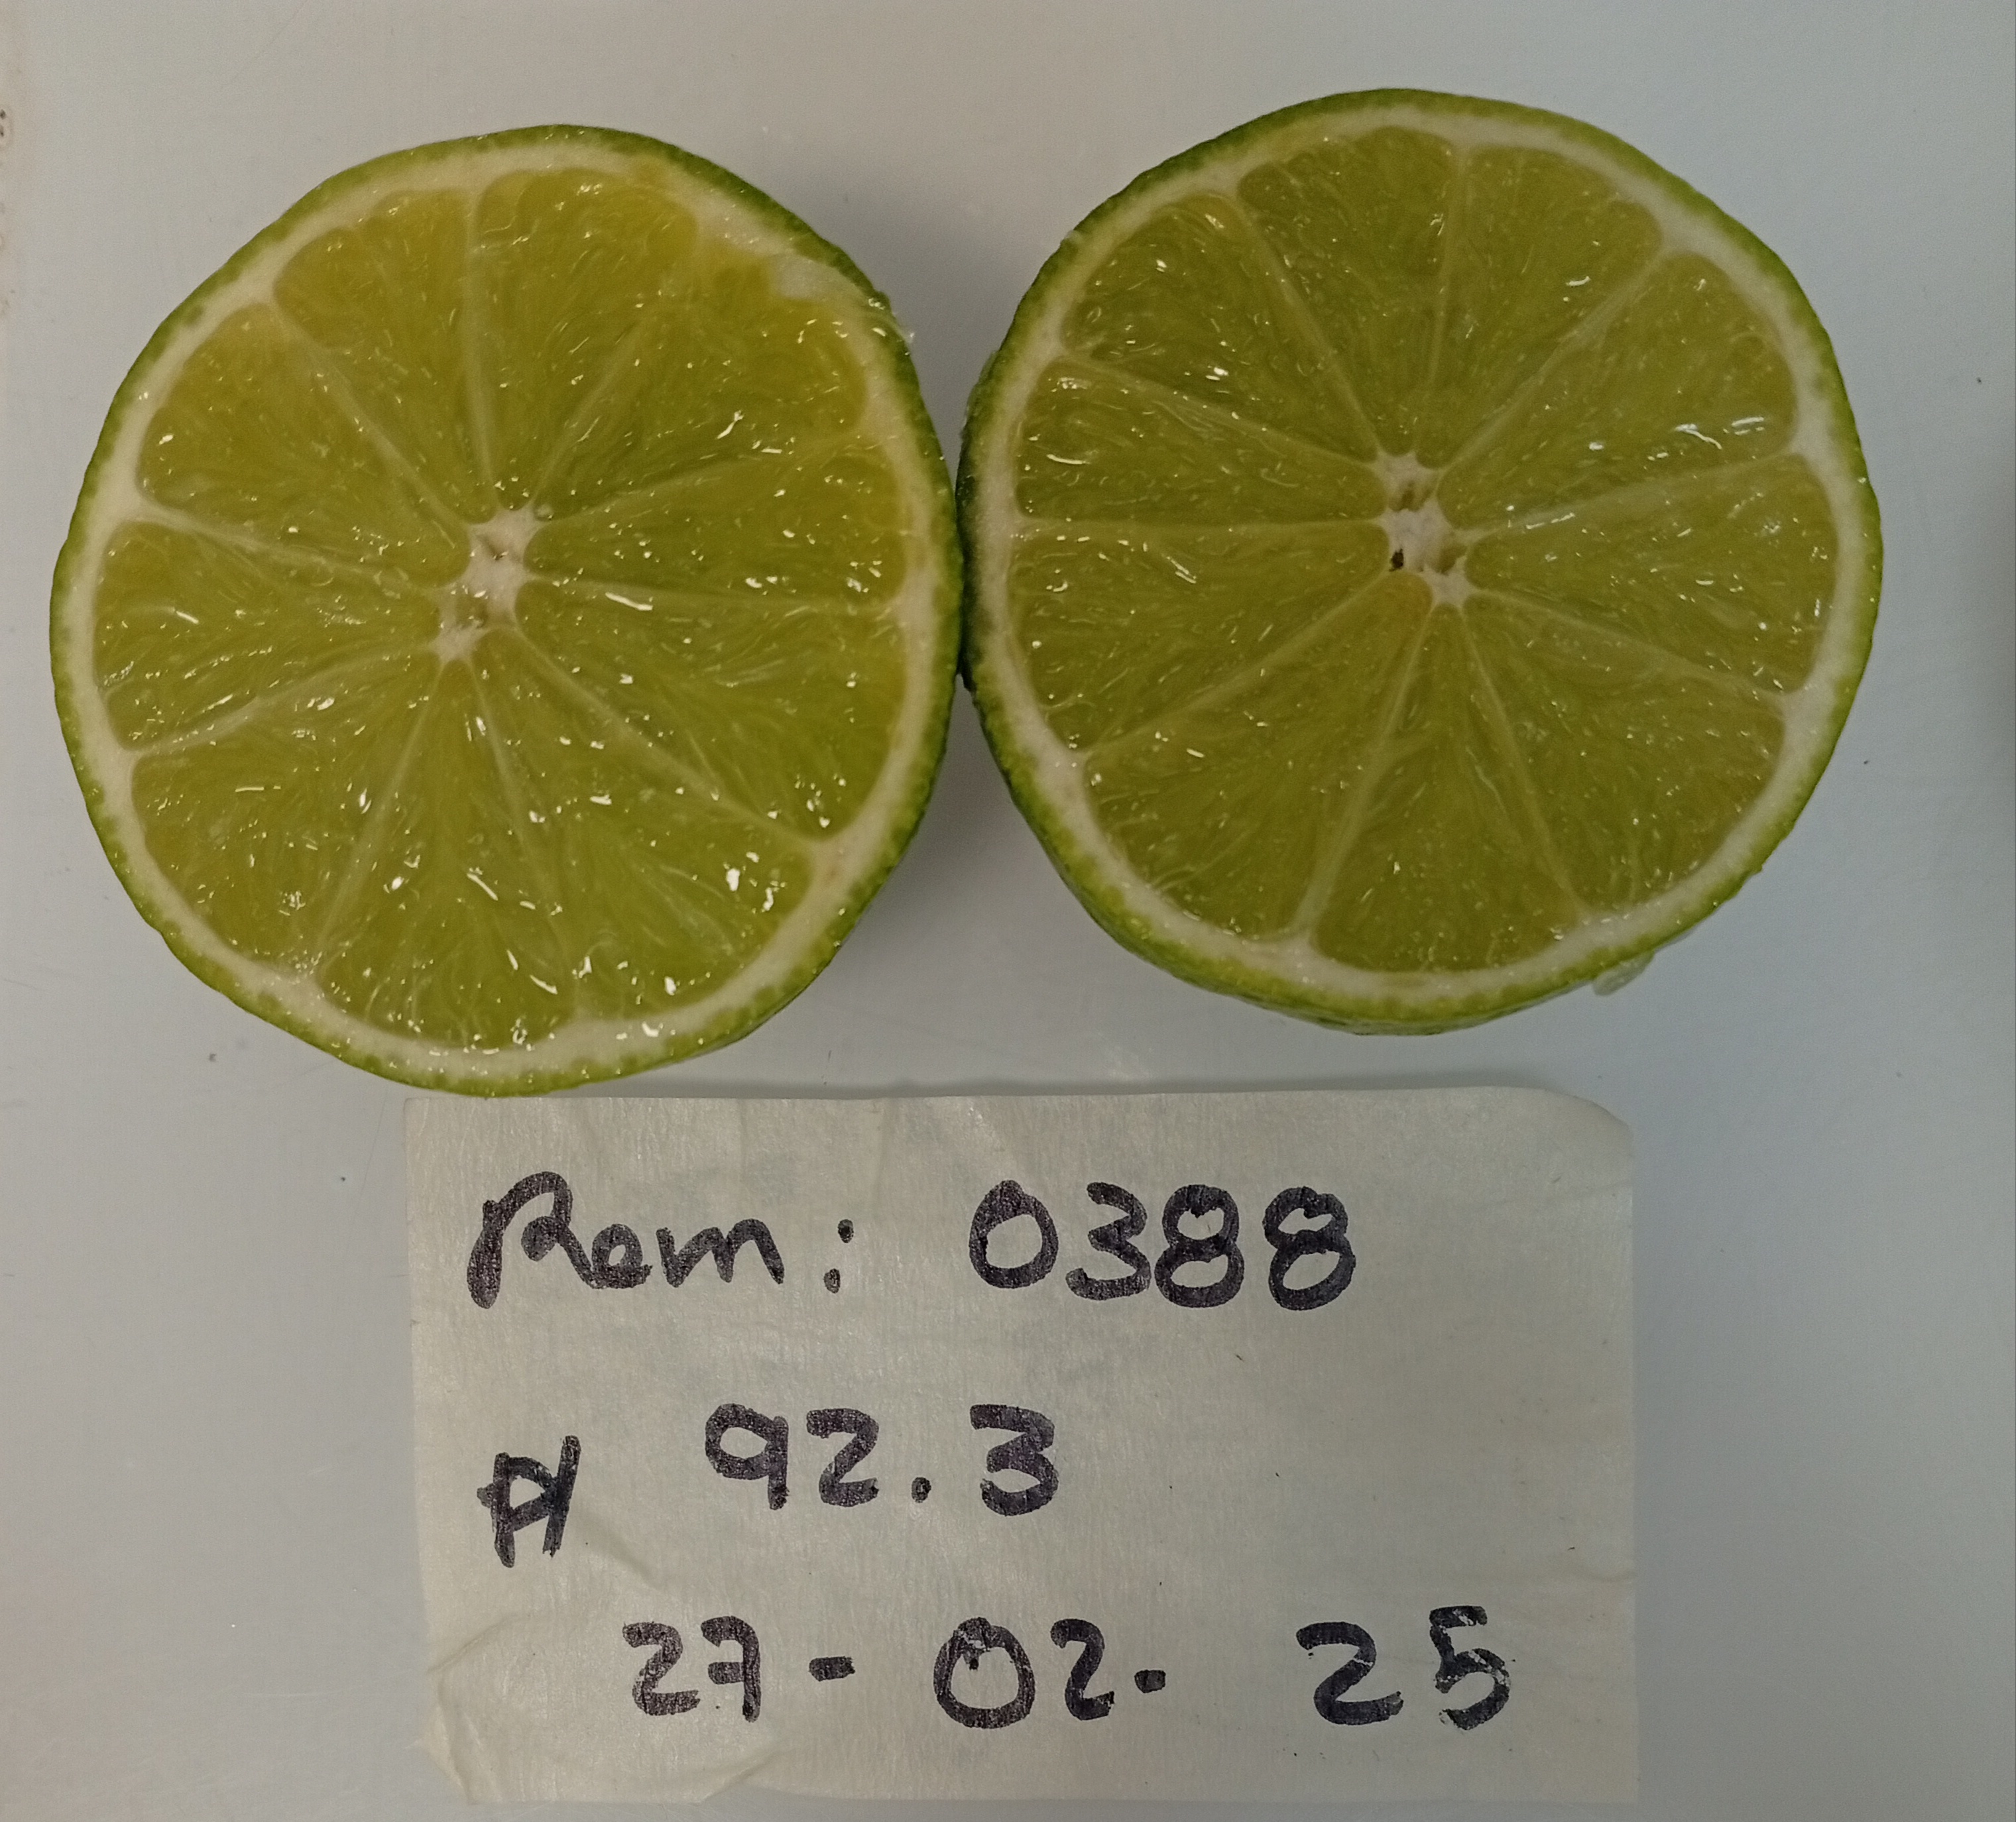 Rem: 0388
# 92.3
27-02-25